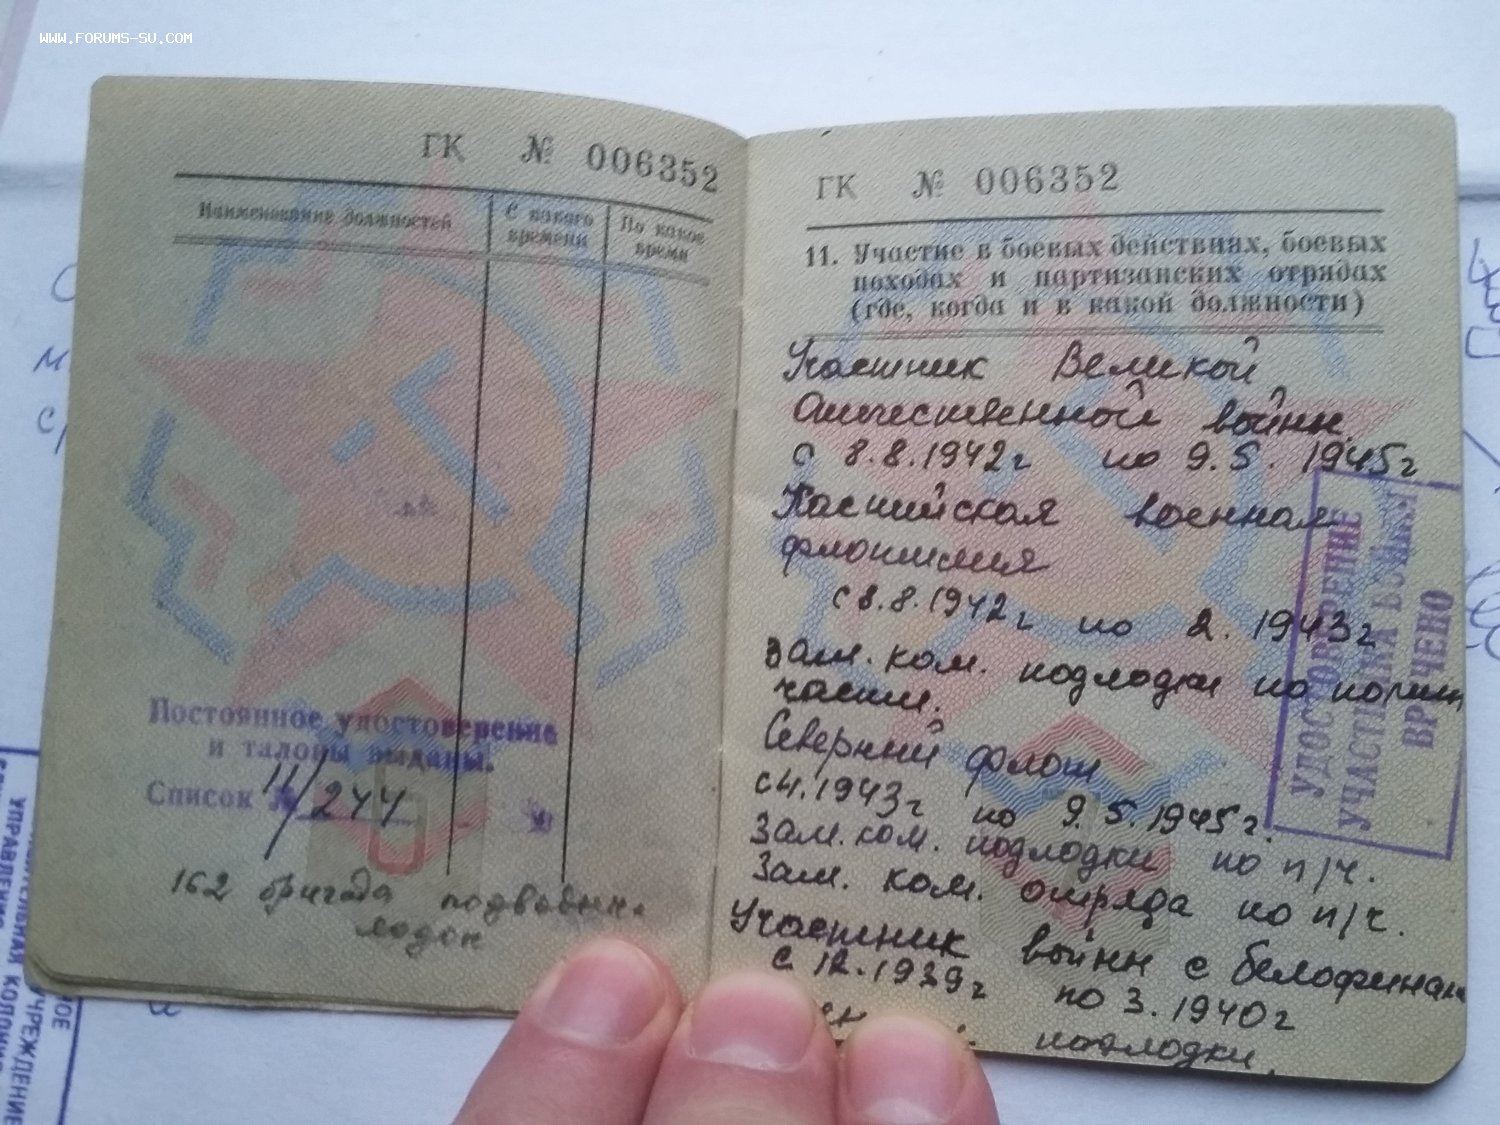 WWW.FORUMS-SU.COM
ГК № 006352
Наименование должностей
С какого времени
По какое время
Постоянное удостоверение
и талоны выданы.
Список № 11/244
162 бригада подводн.
лодок
ГК № 006352
11. Участие в боевых действиях, боевых
походах и партизанских отрядах
(где, когда и в какой должности)
Участник Великой
Отечественной войны
с 8.8.1942г по 9.5.1945г
Каспийская военная
флотилия
с 8.8.1942г по 2.1943г
Зам. ком. подлодки по полит
части.
Северный флот
с 4.1943г по 9.5.1945г.
Зам. ком. подлодки по п/ч.
Зам. ком. отряда по п/ч.
Участник войны с белофиннами
с 12.1939г по 3.1940г
подлодки
УДОСТОВЕРЕНИЕ
УЧАСТНИКА ВОЙНЫ
ВРУЧЕНО
УПРАВЛЕНИЕ